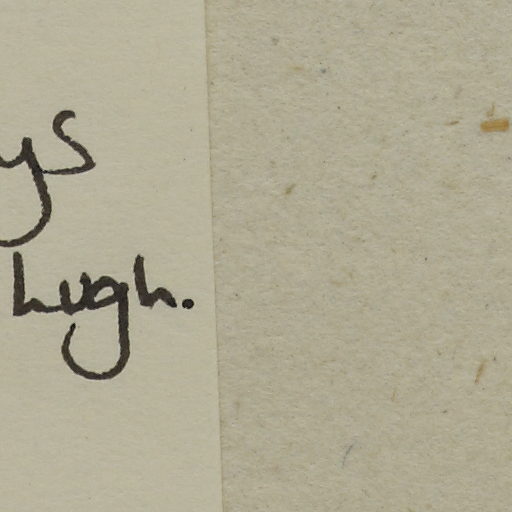 ys
hugh.